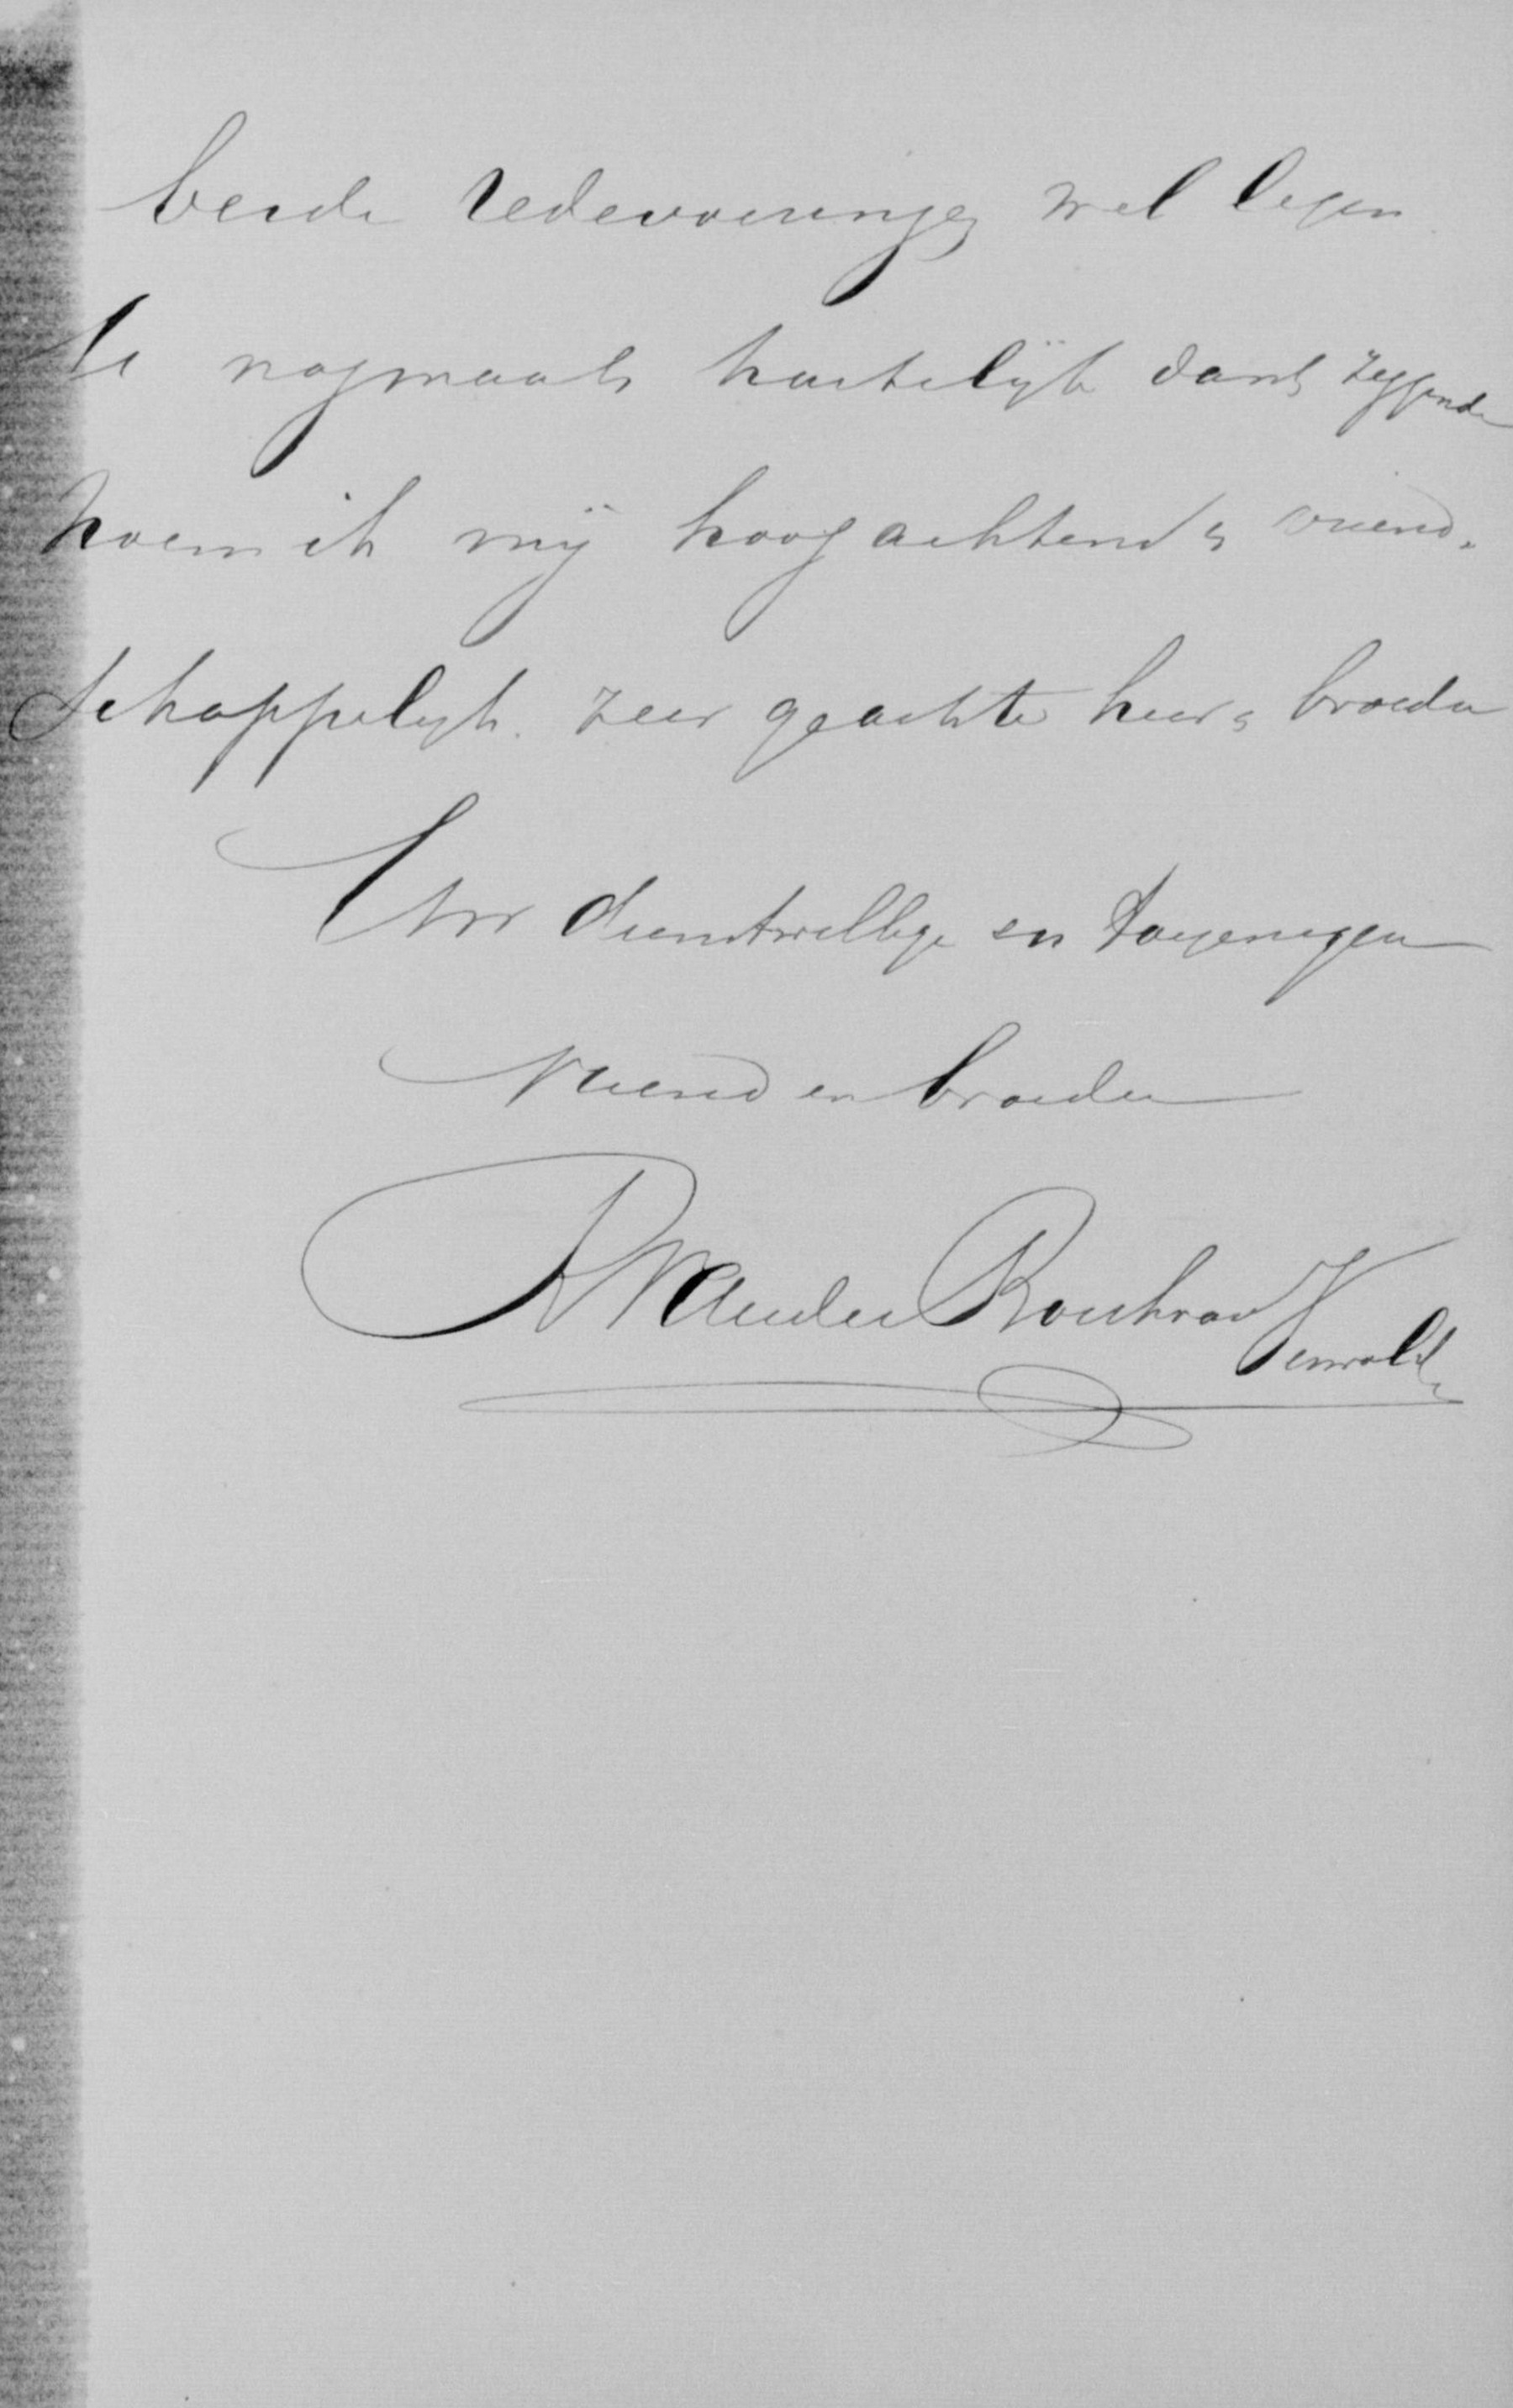 beide redevoeringen wel lezen
U nogmaals hartelijk dank zeggende
noem ik mij hoogachtend & vriend-
schappelijk. Zeer geachte heer & broeder
Uw dienstwillige en toegenegen
Vriend en broeder